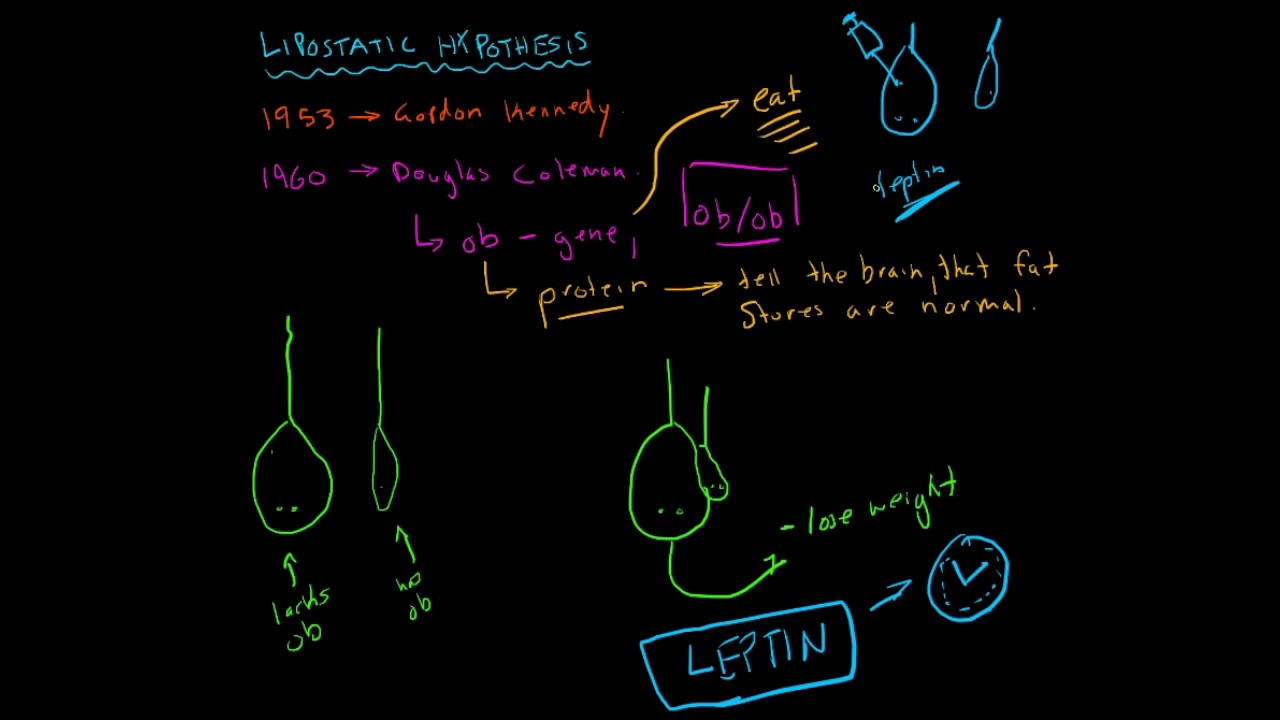 LIPOSTATIC HYPOTHESIS
1953 → Gordon Kennedy.
1960 → Douglas Coleman.
ob - gene,
ob/ob
eat
protein → tell the brain, that fat
Stores are normal.
leptin
lacks
ob
has
ob
- lose weight
LEPTIN